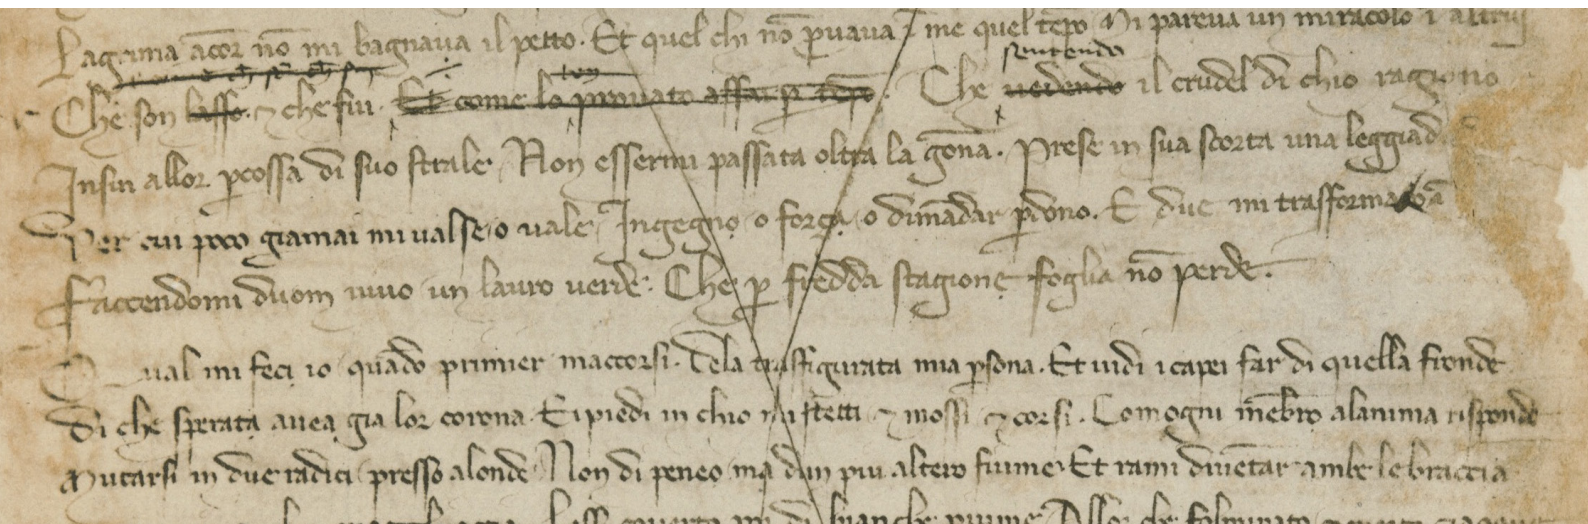 Lagrima ācor nō mi bagnaua il petto. Et quel chi nō ꝑuaua ī me quel tēpo Mi pareua un miracolo ī altrui
sentendo
Che son lasso. ⁊ che fui. Et come lo prouato assai ꝑ tēpo. Che uedendo il crudel di chio ragiono
Insin allor ꝑcossa di suo strale. Non essermi passata oltra la gōna. Prese in sua scorta una leggiad
Per cui poco giamai mi ualse o uale Ingegno o força o dimādar ꝑdono. E due mi trasformaro ī
Faccendomi duom uiuo un lauro uerde. Che ꝑ fredda stagione foglia nō perde.
Qual mi feci io quādo primier maccorsi. Dela trasfigurata mia ꝑsona. Et uidi i capei far di quella fronde
Di che sperata auea gia lor corona. E i piedi in chio mi stetti ⁊ mossi ⁊ corsi. Comogni mēbro alanima risponde
Mutarsi in due radici presso alonde Non di peneo ma dun piu altero fiume. Et rami diuētar ambe le braccia
couerto poi di bianche piume. Allor che folminato